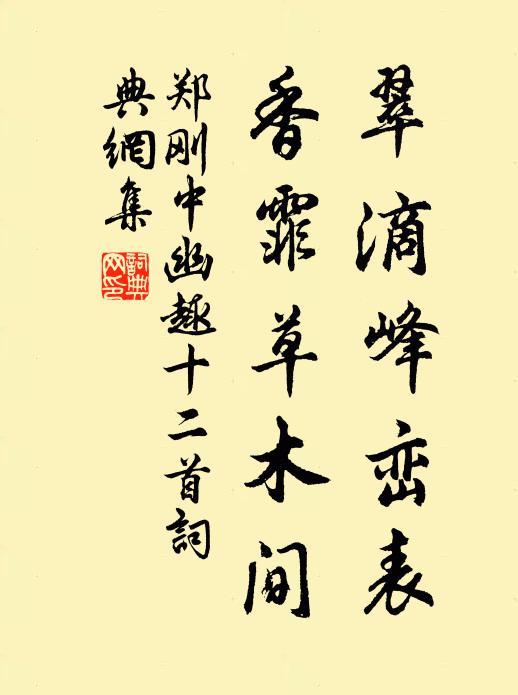 翠滴峰峦表
香霏草木间
郑刚中幽趣十二首詞
典網集
詞典
网印